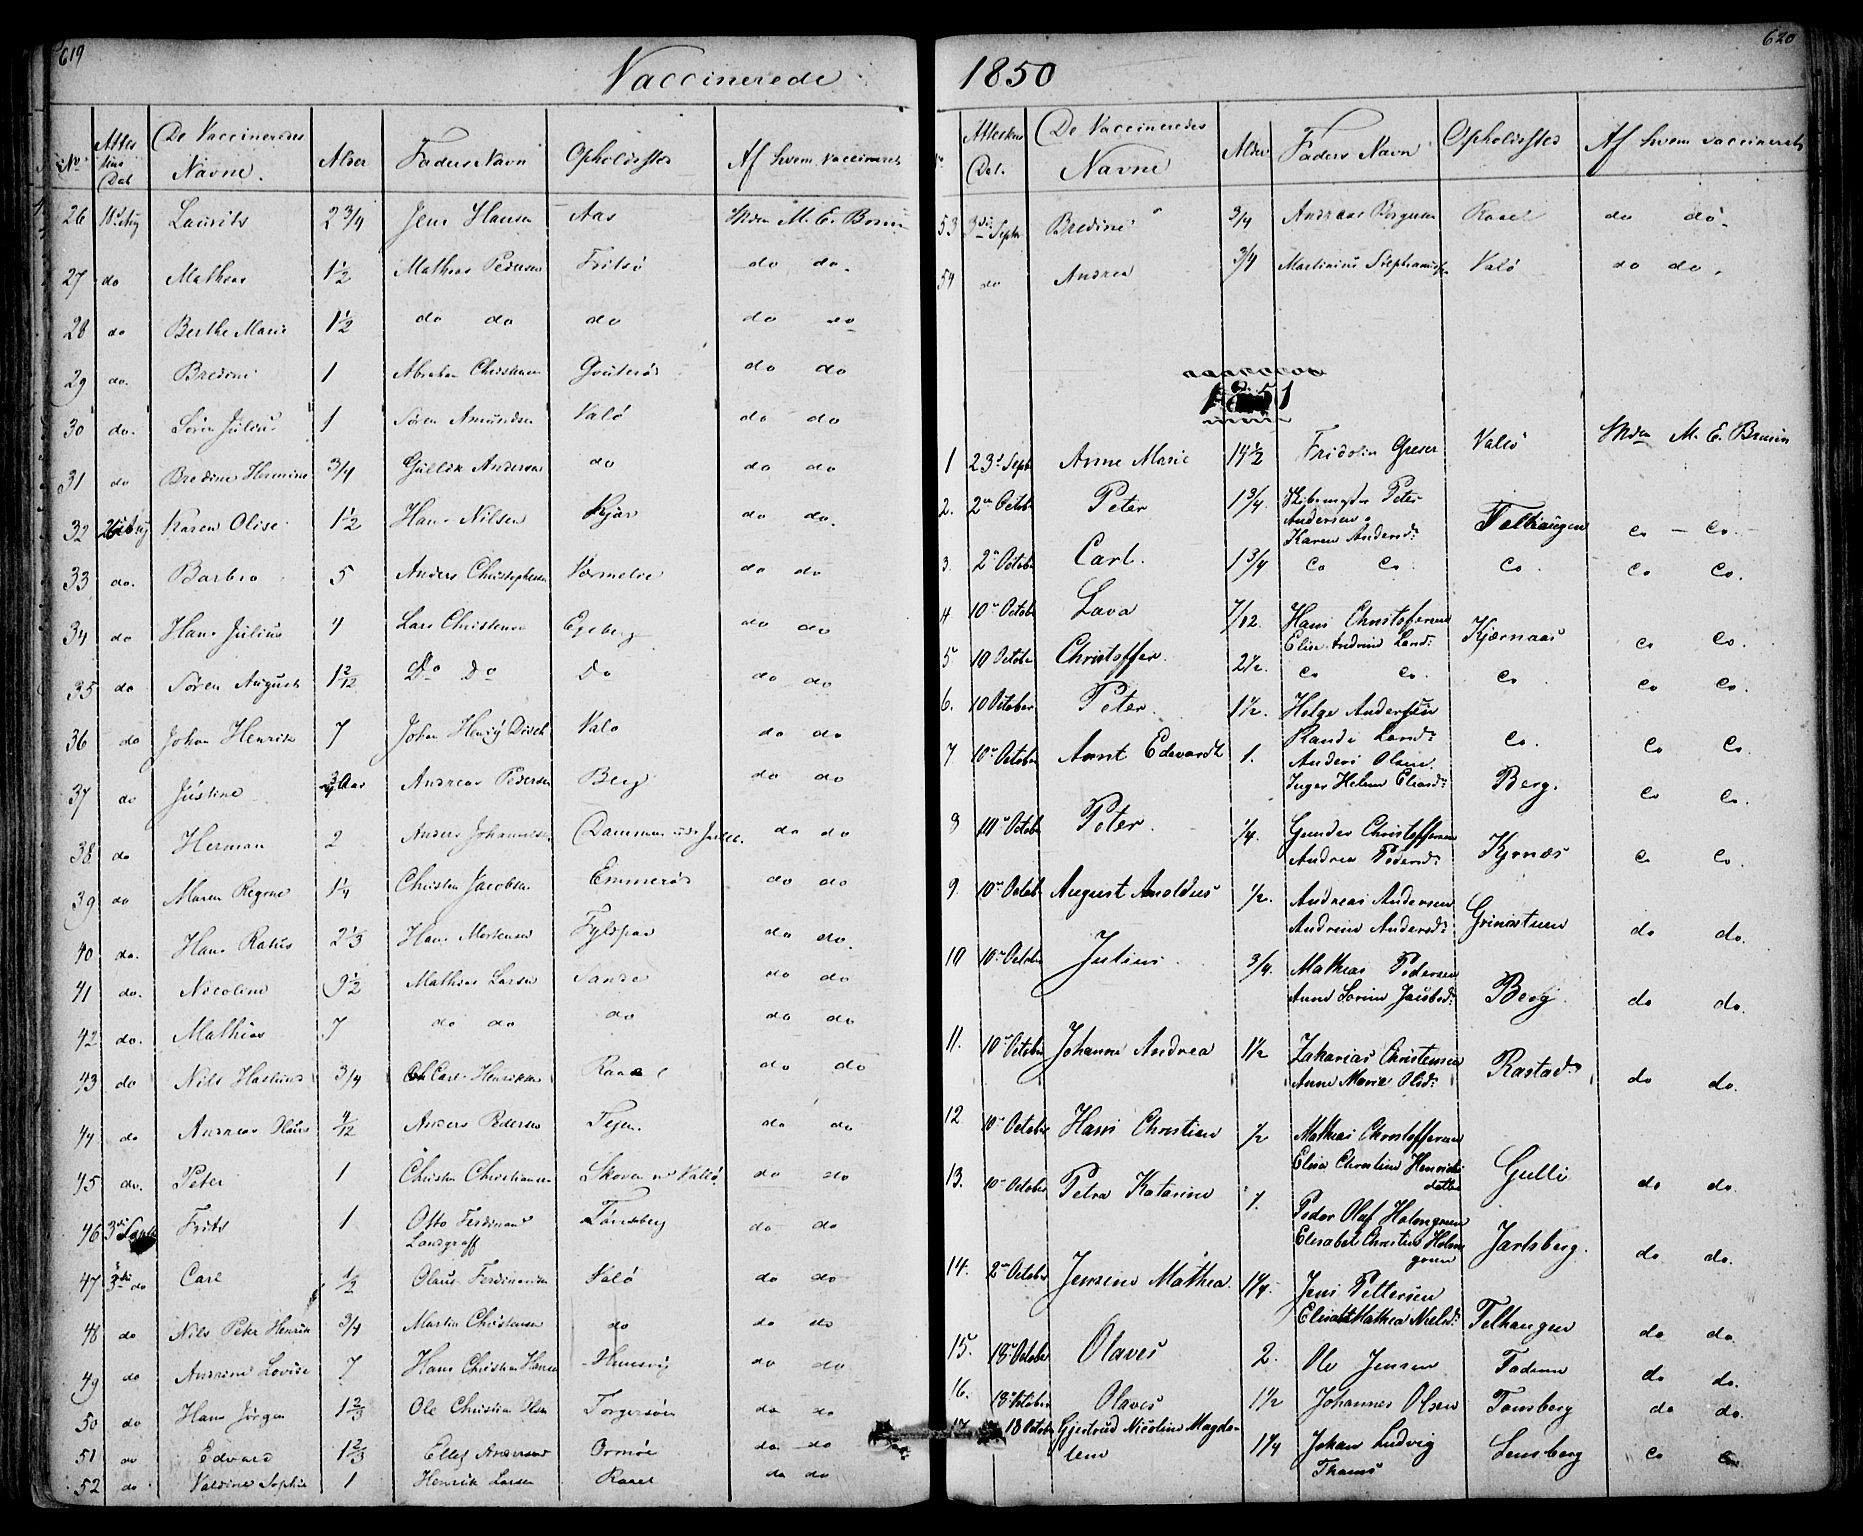 619
Vaccinerede
No Attestus Dat De Vaccineredes Navne. Alder Faders Navn Opholdssted Af hvem vaccineret
26 Laurits 2 3/4 Jens Hansen Aas M. E. Bruun
27 do Mathias 1 1/2 Mathias Pedersen Fritsø do do.
28 do Berthe Marie 1 1/2 do do do do do
29 do. Bredine 1 Abraham Christensen do do
30 do. Søren Julius 1 Søren Amundsen Valø do do
31 do Bredine Hermine 3/4 Gullik Andersen do do do
32 Karen Olise 1 1/2 Hans Nilsen Kjær do do.
33 do. Barbro 5 Anders Christophersen do do
34 do Hans Julius 4 Lars Christensen Egeberg do do
35 do Søren August 1 2/12 Do Do Do do do
36 do Johan Henrik 7 Johan Valø do do
37 do Justine 3/4 Aar Andreas Pedersen Berg do do
38 do Herman 2 Anders Johannesen do do
39 do Maren Regine 1 1/4 Christen Jacobsen Emmerød do do
40 do. Hans 2 1/3 Hans Mortensen Fylspæ do do.
41 do. Nicoline 9 1/2 Mathias Larsen Sande do do
42 do. Mathias 7 do do do do do
43 do Nils Haslund 3/4 Carl Henriksen Raael do do
44 do Andreas 4/12 Anders Pedersen Tejen. do do
45 do. Peter 1 Christen Christiansen Skoven Valø do do
46 3die Septb Frits 1 Otto Ferdinand Tønsberg do do
Landgraff
47 3die do Carl 1/2 Olaus Ferdinandsen Valø do do
48 do Nils Peter Henrik 3/4 Martin Christensen do do do
49 do Andrine Lovise 7 Hans Christian Hansen do do
50 do Hans Jørgen 1 2/3 Ole Christian Olsen Torgersøen do do
51 do Edvard 1 2/3 Ellef Andersen Ormøe do do
52 do Valdine Sophie 1 Henrik Larsen Raael do do
620
1850
Attestus Dat. De Vaccineredes Navne Alder Faders Navn Opholdssted Af hvem vaccineret
53 3die Septbr Bredine 3/4 Andreas Raael do do
54 do Andrea 3/4 Martinius Valø do do.
1851
1 23d Septb Anne Marie 14 1/2 Fridolin Greser Valø M. E. Bruun
2. 2den Octob Peter 1 3/4. Peter
Andersen
Karen Andersd: Telhaugen Co - Co.
3. 2n Octob Carl. 1 3/4 Co Co. Co. Co Co.
4 10n Octob Lava 7/12. Hans Christoffersen
Elise Andrine Larsd: Kjærnaas Co Co.
5. 10 Octobr Christoffer. 2 1/2. Co Co. Co. Co Co.
6. 10 October Peter. 1 1/2. Helge Andersen
Randi Larsd: Co. Co Co.
7. 10n October Arnt Edevardt 1. Anders Olsen.
Inger Helene Eliasd: Berg. Co Co.
8 10n Octob Peter. 1/4. Gunder Christoffersen
Andrea Pedersd: Kjrnæs Co Co.
9. 10n Octob August Arnoldus 1/2. Andreas Andersen
Andrine Andersd: Grinastuen do do.
10 10n Octobr Julius. 3/4. Mathias Pedersen
Anne Sorine Jacobsd: Berg. do do.
11. 10n October Johanne Andrea 1 1/2 Zakarias Christensen
Anne Marie Olsd: Rastad. do do.
12 10n October Hans Christian 1/2 Mathias Christoffersen
Elise Christine Henriks
datter Gulli do do.
13. 10n October Petra Katarine 1. Peder Olaf Holmgreen
Elisabet Christine Holm
green Jarlsberg. do do.
14. 2n October Jensine Mathea. 1 1/4. Jens Pettersen
Elisabet Mathea Nielsd: Telhaugen do do.
15. 18n October Olaves 2. Ole Jensen Fadum do do.
16. 18 October Olaves 1 1/2 Johannes Olsen Tønsberg do do.
17. 18 October Gjertrud Nicoline Magda-
lene 1 1/4 Johan Ludvig
Thams Tønsberg Co Co